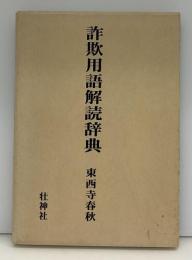 詐欺用語解読辞典
東西寺春秋
壮神社